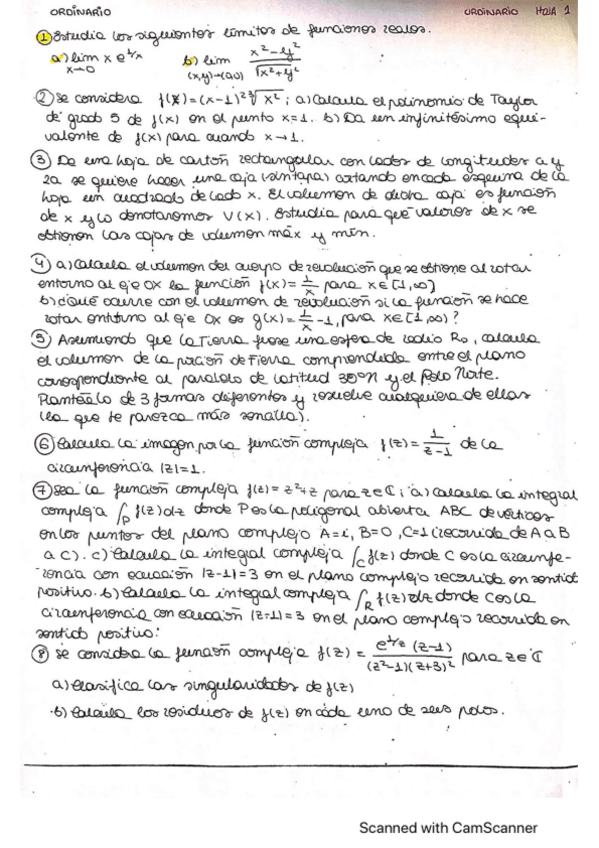 ORDINARIO
ORDINARIO HOJA 1
① Estudia los siguientes límites de funciones reales.
a) lim x→0 x e^{1/x} b) lim (x,y)→(0,0) x²-y² / √x²+y²
② Se considera f(x)=(x-1)² ³√x² ; a) Calcula el polinomio de Taylor
de grado 5 de f(x) en el punto x=1. b) Da un infinitésimo equi-
valente de f(x) para cuando x→1.
③ De una hoja de cartón rectangular con lados de longitudes a y
2a se quiere hacer una caja (sin tapa) cortando en cada esquina de la
hoja un cuadrado de lado x. El volumen de dicha caja es función
de x y lo denotaremos V(x). Estudia para qué valores de x se
obtienen las cajas de volumen máx y mín.
④ a) Calcula el volumen del cuerpo de revolución que se obtiene al rotar
entorno al eje OX la función f(x)= 1/x para x∈[1,∞]
b) ¿Qué ocurre con el volumen de revolución si la función se hace
rotar entorno al eje OX es g(x)= 1/x -1, para x∈[1,∞) ?
⑤ Asumiendo que la Tierra fuese una esfera de radio R₀, calcula
el volumen de la porción de Tierra comprendida entre el plano
correspondiente al paralelo de latitud 30ºN y el Polo Norte.
Plantéalo de 3 formas diferentes y resuelve cualquiera de ellas
(la que te parezca más sencilla).
⑥ Calcula la imagen por la función compleja f(z)= 1/z-1 de la
circunferencia |z|=1.
⑦ Sea la función compleja f(z)= z²+z para z∈ℂ ; a) Calcula la integral
compleja ∫_P f(z)dz donde P es la poligonal abierta ABC de vértices
en los puntos del plano complejo A=i, B=0, C=1 (recorrida de A a B
a C). c) Calcula la integral compleja ∫_C f(z) donde C es la circunfe-
rencia con ecuación |z-1|=3 en el plano complejo recorrida en sentido
positivo. b) Calcula la integral compleja ∫_R f(z)dz donde C es la
circunferencia con ecuación |z-1|=3 en el plano complejo recorrida en
sentido positivo.
⑧ Se considera la función compleja f(z) = e^{1/z} (z-1) / (z²-1)(z+3)² para z∈ℂ
a) Clasifica las singularidades de f(z)
b) Calcula los residuos de f(z) en cada uno de sus polos.
Scanned with CamScanner